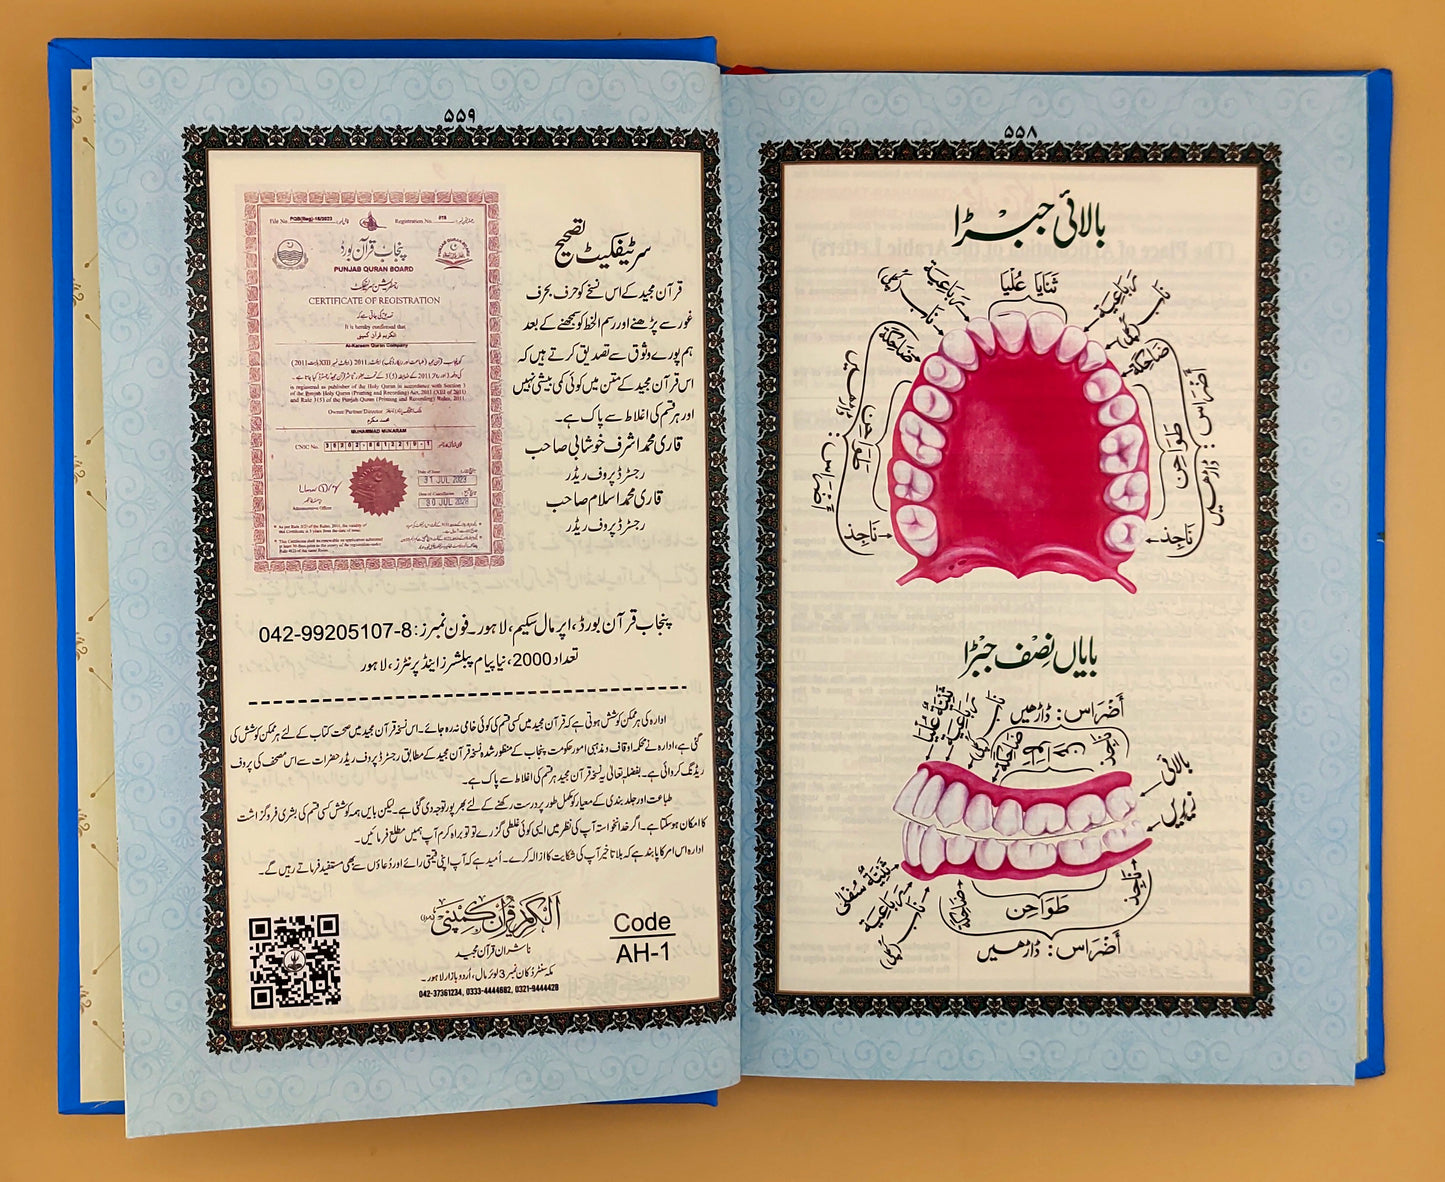 ۵۵۸
بالائی جبڑا
ثَنَایا عُلْیَا
رَبَاعِیَة
نَاب (کُچلی)
ضَاحِکَة
طَوَاحِن
أَضْرَاس: ڈاڑھیں
نَاجِذ
رَبَاعِیَة
نَاب (کُچلی)
ضَاحِکَة
طَوَاحِن
أَضْرَاس: ڈاڑھیں
نَاجِذ
بایاں نِصف جبڑا
أَضْرَاس: ڈاڑھیں
ثَنِیَّة عُلْیَا
رَبَاعِیَة
نَاب (کُچلی)
ضَاحِکَة
نَاجِذ
بالائی
زیریں
ثَنِیَّة سُفْلٰی
رَبَاعِیَة
نَاب (کُچلی)
ضَاحِکَة
طَوَاحِن
نَاجِذ
أَضْرَاس: ڈاڑھیں
۵۵۹
File No. PQB(Reg)-16/2023
Registration No. 016
پنجاب قرآن بورڈ
PUNJAB QURAN BOARD
رجسٹریشن سرٹیفکیٹ
CERTIFICATE OF REGISTRATION
تصدیق کی جاتی ہے کہ
It is hereby confirmed that
الکریم قرآن کمپنی
Al-Kareem Quran Company
is registered as publisher of the Holy Quran in accordance with Section 3
of the Punjab Holy Quran (Printing and Recording) Act, 2011 (XIII of 2011)
and Rule 3(5) of the Punjab Quran (Printing and Recording) Rules, 2011.
Owner/Partner/Director
محمد مکرم
MUHAMMAD MUKARAM
CNIC No.
Date of Issue
31 JUL 2023
Date of Cancellation
30 JUL 2028
Administrative Officer
سرٹیفکیٹ تصحیح
قرآن مجید کے اس نسخے کو حرف بحرف
غور سے پڑھنے اور رسم الخط کو سمجھنے کے بعد
ہم پورے وثوق سے تصدیق کرتے ہیں کہ
اس قرآن مجید کے متن میں کوئی کمی بیشی نہیں
اور ہر قسم کی اغلاط سے پاک ہے۔
قاری محمد اشرف خوشابی صاحب
رجسٹرڈ پروف ریڈر
قاری محمد اسلام صاحب
رجسٹرڈ پروف ریڈر
پنجاب قرآن بورڈ، اپر مال سکیم، لاہور۔ فون نمبرز: 8-99205107-042
تعداد 2000، نیا پیام پبلشرز اینڈ پرنٹرز، لاہور
ادارہ کی ہر ممکن کوشش ہوتی ہے کہ قرآن مجید میں کسی قسم کی کوئی خامی نہ رہ جائے۔ اس نسخہ قرآن مجید میں صحت کتاب کے لئے ہر ممکن کوشش کی
گئی ہے، ادارہ نے محکمہ اوقاف و مذہبی امور حکومت پنجاب کے منظور شدہ نسخہ قرآن مجید کے مطابق رجسٹرڈ پروف ریڈر حضرات سے اس مصحف کی پروف
ریڈنگ کروائی ہے۔ بفضلہٖ تعالیٰ یہ نسخہ قرآن مجید ہر قسم کی اغلاط سے پاک ہے۔
طباعت اور جلد بندی کے معیار کو مکمل طور پر درست رکھنے کے لئے بھرپور توجہ دی گئی ہے۔ لیکن بایں ہمہ کوشش کسی قسم کی بشری فروگزاشت
کا امکان ہوسکتا ہے۔ اگر خدانخواستہ آپ کی نظر میں ایسی کوئی غلطی گزرے تو تو براہ کرم آپ ہمیں مطلع فرمائیں۔
ادارہ اس امر کا پابند ہے کہ بلا تاخیر آپ کی شکایت کا ازالہ کرے۔ اُمید ہے کہ آپ اپنی قیمتی رائے اور دُعاؤں سے بھی مستفید فرماتے رہیں گے۔
الکریم قرآن کمپنی
ناشران قرآن مجید
مکہ سنٹر دُکان نمبر 3 لوئر مال، اُردو بازار لاہور۔
042-37361234, 0333-4444682, 0321-9444428
Code
AH-1